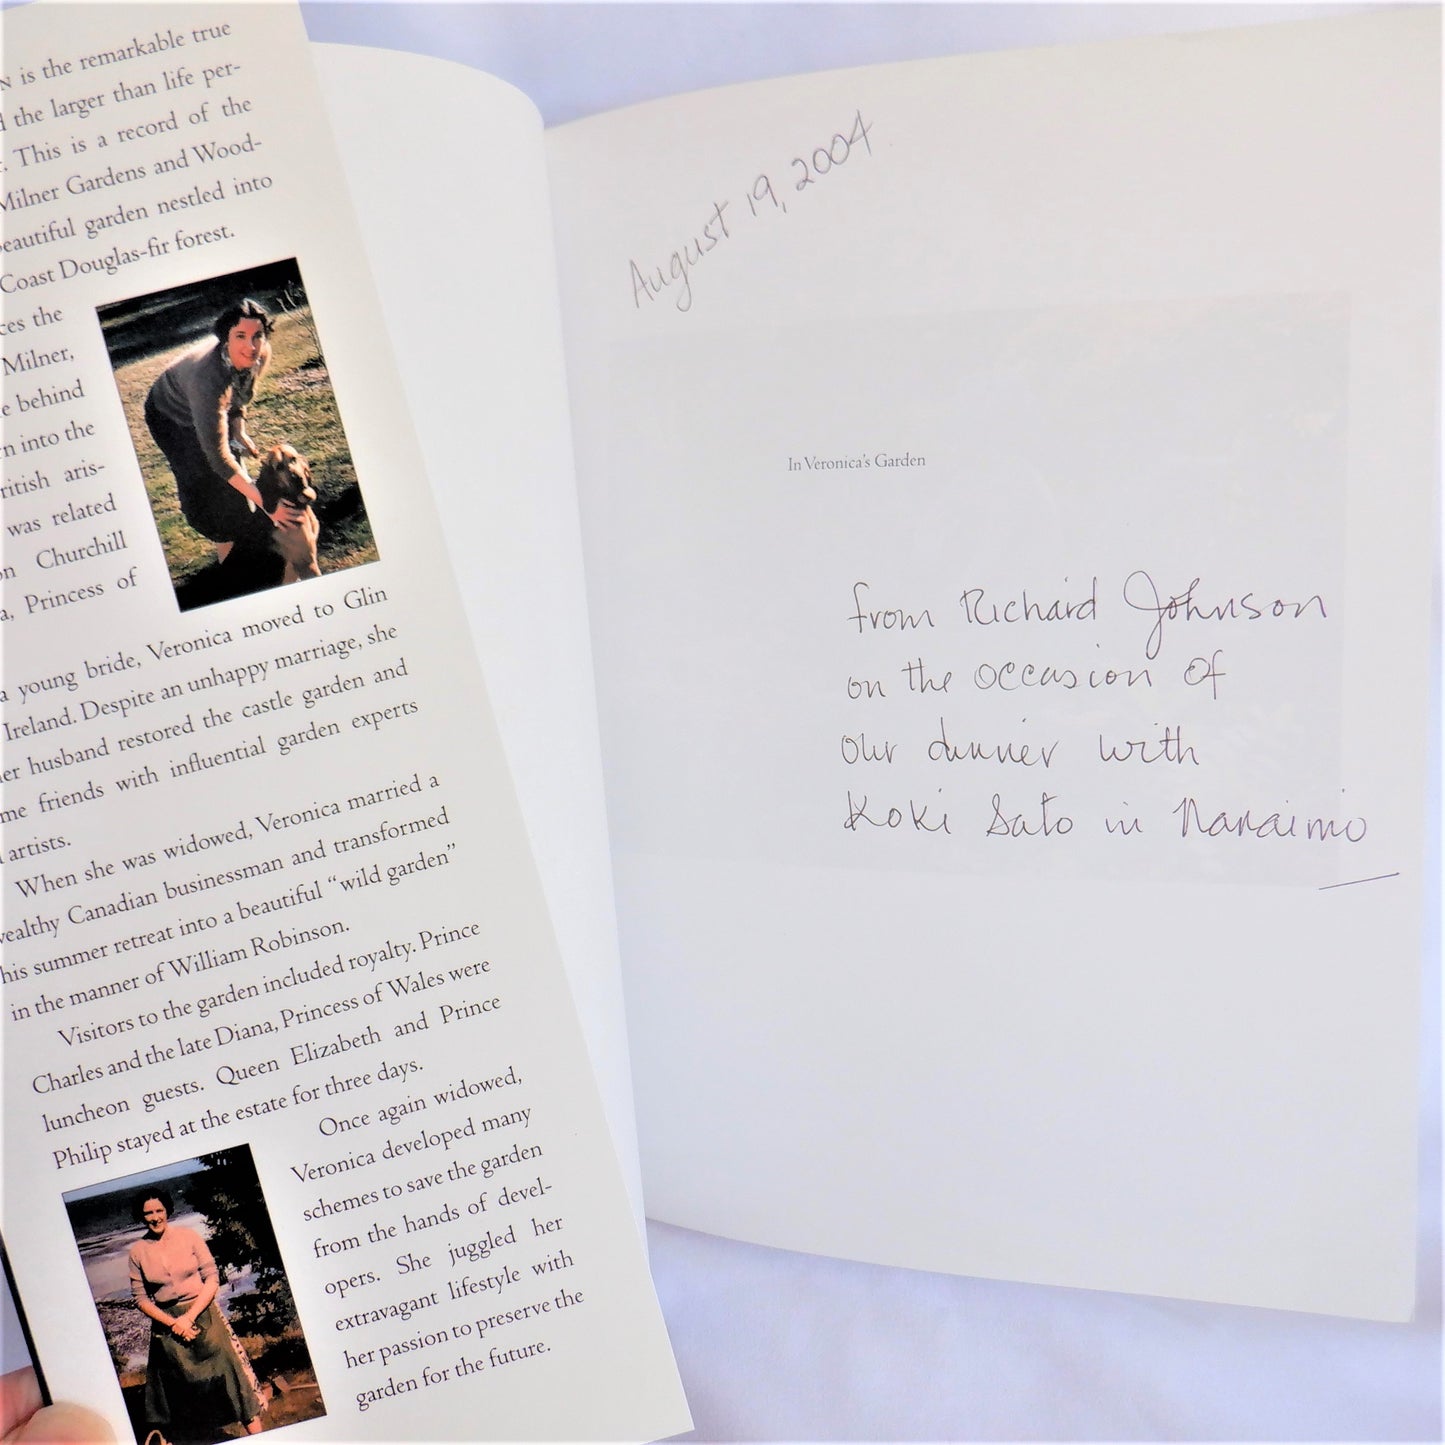 is the remarkable true
the larger than life per-
This is a record of the
Milner Gardens and Wood-
beautiful garden nestled into
Coast Douglas-fir forest.
ces the
Milner,
e behind
rn into the
ritish aris-
was related
on Churchill
a, Princess of
a young bride, Veronica moved to Glin
Ireland. Despite an unhappy marriage, she
her husband restored the castle garden and
me friends with influential garden experts
artists.
When she was widowed, Veronica married a
wealthy Canadian businessman and transformed
his summer retreat into a beautiful “wild garden”
in the manner of William Robinson.
Visitors to the garden included royalty. Prince
Charles and the late Diana, Princess of Wales were
luncheon guests. Queen Elizabeth and Prince
Philip stayed at the estate for three days.
Once again widowed,
Veronica developed many
schemes to save the garden
from the hands of devel-
opers. She juggled her
extravagant lifestyle with
her passion to preserve the
garden for the future.
August 19, 2004
In Veronica's Garden
from Richard Johnson
on the occasion of
our dinner with
Koki Sato in Nanaimo